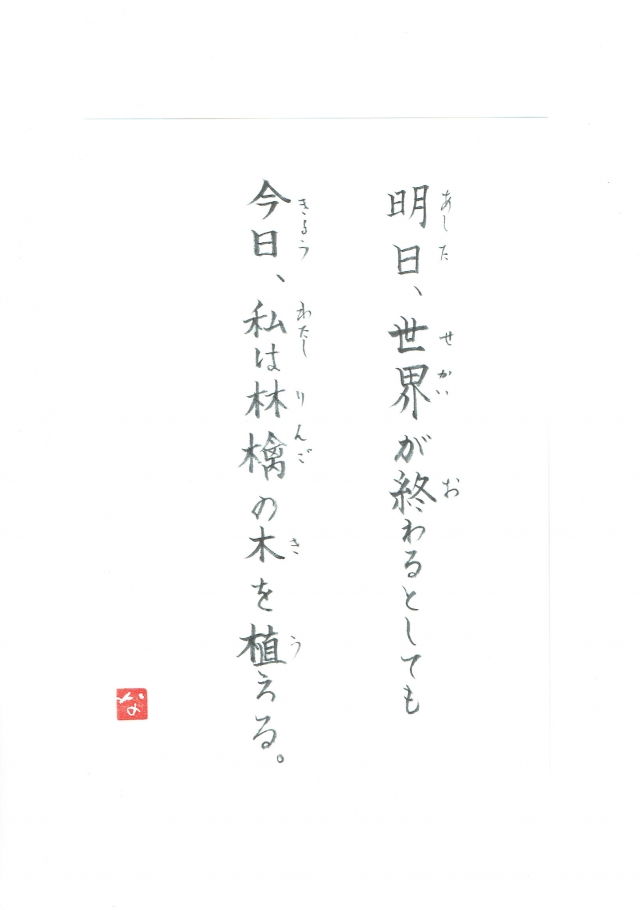 明日、世界が終わるとしても
あした せかい お
今日、私は林檎の木を植える。
きょう わたし りんご き う
な